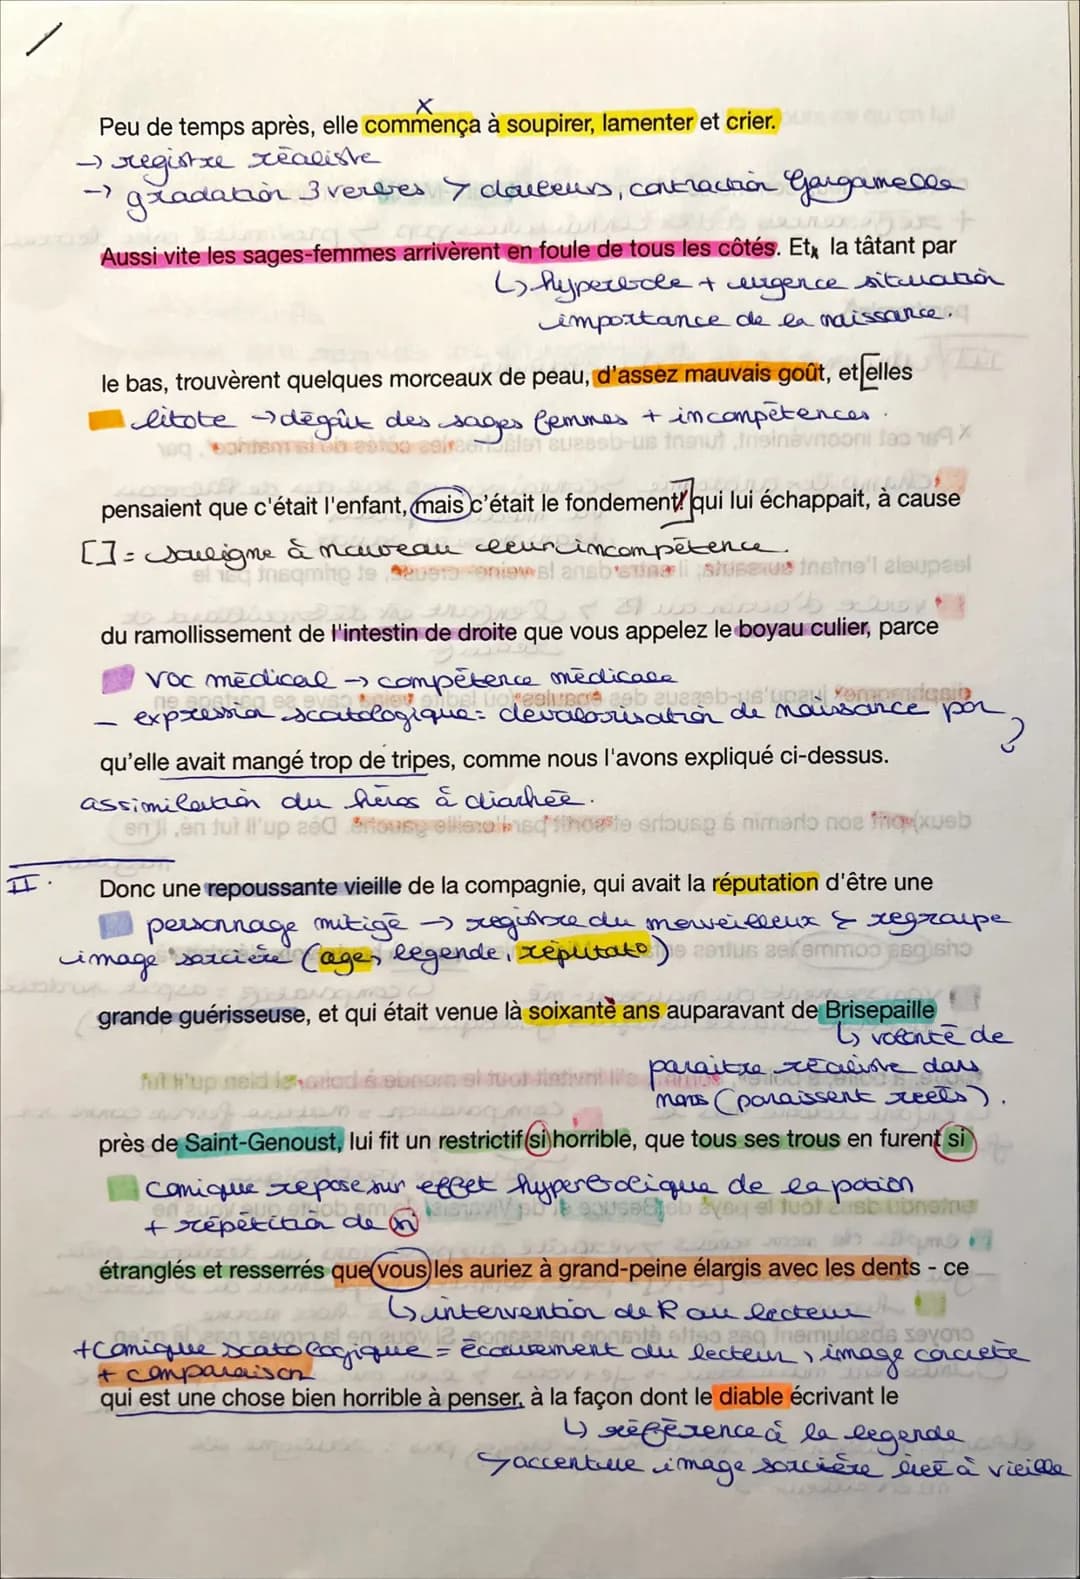 Peu de temps après, elle commença à soupirer, lamenter et crier.
→ registre réaliste
→ gradation 3 verbes → douleurs, contraction Gargamelle
Aussi vite les sages-femmes arrivèrent en foule de tous les côtés. Et, la tâtant par
↳ hyperbole + urgence situation
importance de la naissance.
le bas, trouvèrent quelques morceaux de peau, d'assez mauvais goût, et [elles
litote → dégoût des sages femmes + incompétences.
pensaient que c'était l'enfant, mais c'était le fondement] qui lui échappait, à cause
[ ] = souligne à nouveau leur incompétence.
du ramollissement de l'intestin de droite que vous appelez le boyau culier, parce
voc médical → compétence médicale
- expression scatologique = dévalorisation de naissance par
qu'elle avait mangé trop de tripes, comme nous l'avons expliqué ci-dessus.
assimilation du héros à diarhée.
II.
Donc une repoussante vieille de la compagnie, qui avait la réputation d'être une
personnage mitigé → registre du merveilleux & regroupe
image sorcière (age, légende, réputato)
grande guérisseuse, et qui était venue là soixante ans auparavant de Brisepaille
↳ volonté de
paraitre réaliste dans
noms (paraissent réels).
près de Saint-Genoust, lui fit un restrictif si horrible, que tous ses trous en furent si
comique repose sur effet hyperbolique de la potion
+ répétition de si
étranglés et resserrés que vous les auriez à grand-peine élargis avec les dents - ce
↳ intervention de R au lecteur
+ comique scatologique = écœurement du lecteur, image concrète
+ comparaison
qui est une chose bien horrible à penser, à la façon dont le diable écrivant le
↳ référence à la legende
↳ accentue image sorcière liée à vieille